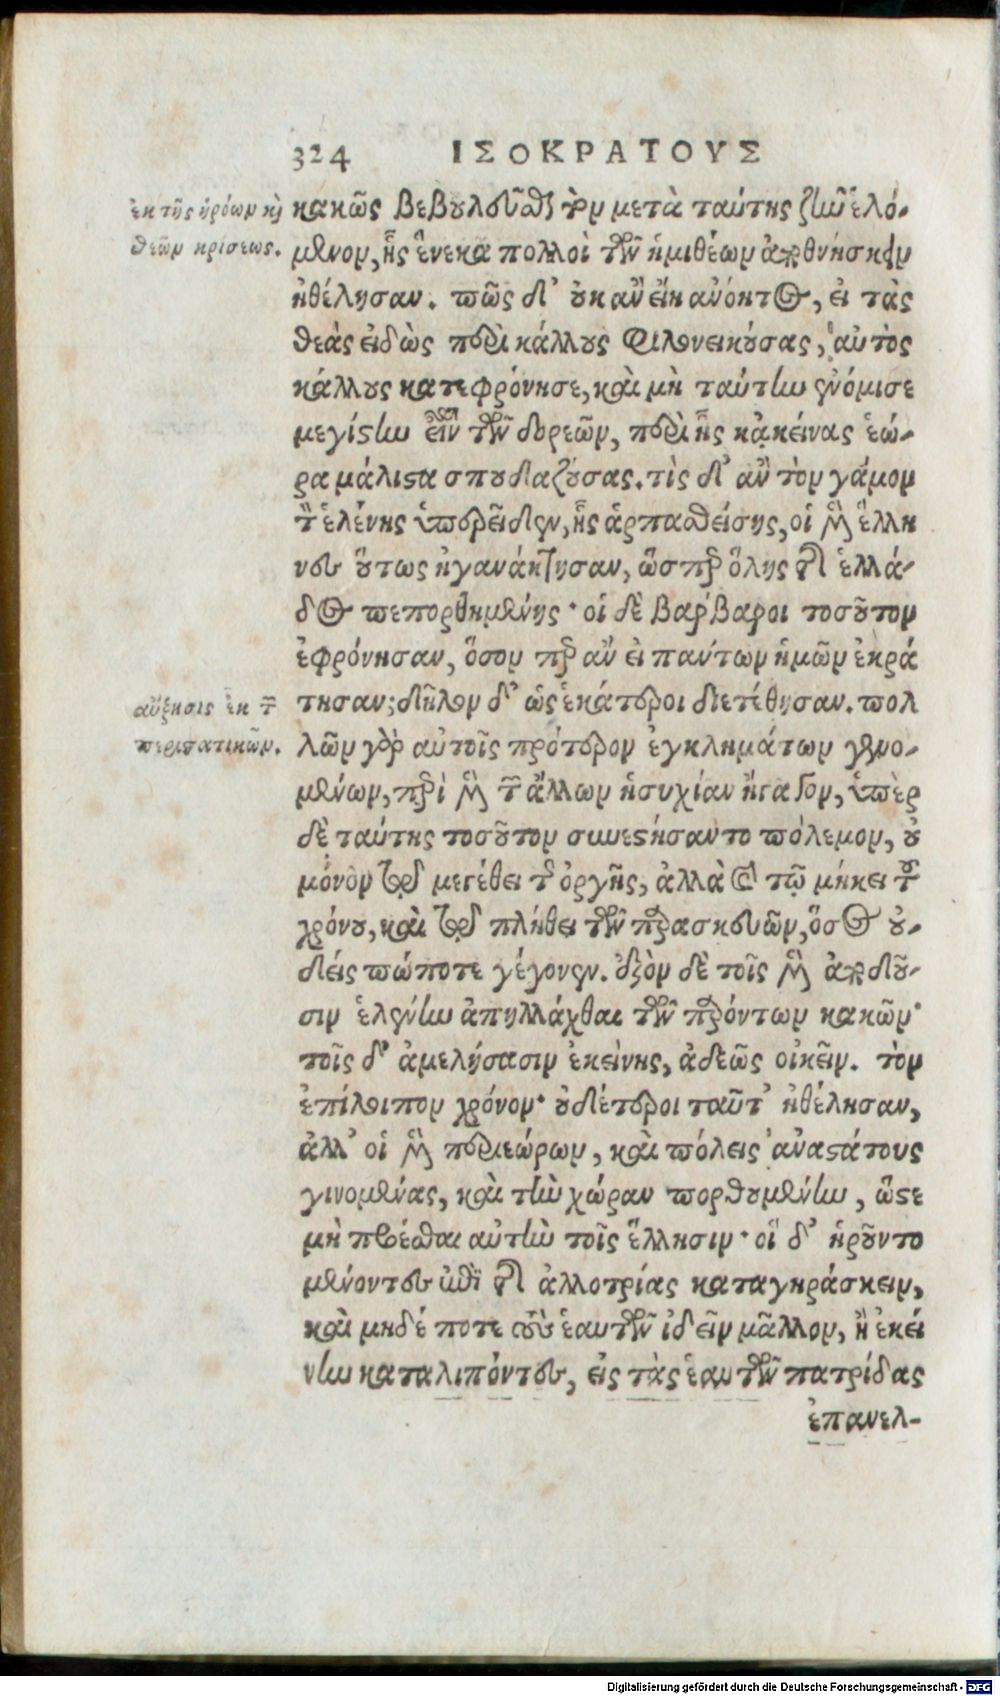 324 ΙΣΟΚΡΑΤΟΥΣ
ἐκ τῆς ἡρώων καὶ
θεῶν κρίσεως.
κακῶς βεβουλεῦσθαι τὸν μετὰ ταύτης ζῆν ἑλό-
μενον, ἧς ἕνεκα πολλοὶ τῶν ἡμιθέων ἀποθνήσκειν
ἠθέλησαν. πῶς δ' οὐκ ἂν εἴη ἀνόητος, εἰ τὰς
θεὰς εἰδὼς περὶ κάλλους φιλονεικούσας, αὐτὸς
κάλλους κατεφρόνησε, καὶ μὴ ταύτην ἐνόμισε
μεγίστην εἶναι τῶν δωρεῶν, περὶ ἧς κἀκείνας ἑώ-
ρα μάλιστα σπουδαζούσας. τὶς δ' ἂν τὸν γάμον
τὸν ἑλένης ὑπερεῖδεν, ἧς ἁρπασθείσης, οἱ μὲν ἕλλη
νες οὕτως ἠγανάκτησαν, ὥσπερ ὅλης τῆς ἑλλά-
δος πεπορθημένης· οἱ δὲ βάρβαροι τοσοῦτον
ἐφρόνησαν, ὅσον περ ἂν εἰ πάντων ἡμῶν ἐκρά
τησαν; δῆλον δ' ὡς ἑκάτεροι διετέθησαν. πολ
αὔξησις ἐκ τῶν
περιστατικῶν.
λῶν γὰρ αὐτοῖς πρότερον ἐγκλημάτων γενο-
μένων, περὶ μὲν τῶν ἄλλων ἡσυχίαν ἦγον, ὑπὲρ
δὲ ταύτης τοσοῦτον συνεστήσαντο πόλεμον, οὐ
μόνον τῷ μεγέθει τῆς ὀργῆς, ἀλλὰ καὶ τῷ μήκει τοῦ
χρόνου, καὶ τῷ πλήθει τῶν παρασκευῶν, ὅσος οὐ-
δεὶς πώποτε γέγονεν. ἐξὸν δὲ τοῖς μὲν ἀποδοῦ-
σιν ἑλένην ἀπηλλάχθαι τῶν παρόντων κακῶν·
τοῖς δ' ἀμελήσασιν ἐκείνης, ἀδεῶς οἰκεῖν. τὸν
ἐπίλοιπον χρόνον· οὐδέτεροι ταῦτ' ἠθέλησαν,
ἀλλ' οἱ μὲν περιεώρων, καὶ πόλεις ἀναστάτους
γινομένας, καὶ τὴν χώραν πορθουμένην, ὥστε
μὴ προέσθαι αὐτὴν τοῖς ἕλλησιν· οἱ δ' ᾑροῦντο
μένοντες ἐπὶ τῆς ἀλλοτρίας καταγηράσκειν,
καὶ μηδέποτε τοὺς ἑαυτῶν ἰδεῖν μᾶλλον, ἢ ἐκεί
νην καταλιπόντες, εἰς τὰς ἑαυτῶν πατρίδας
ἐπανελ-
Digitalisierung gefördert durch die Deutsche Forschungsgemeinschaft - DFG